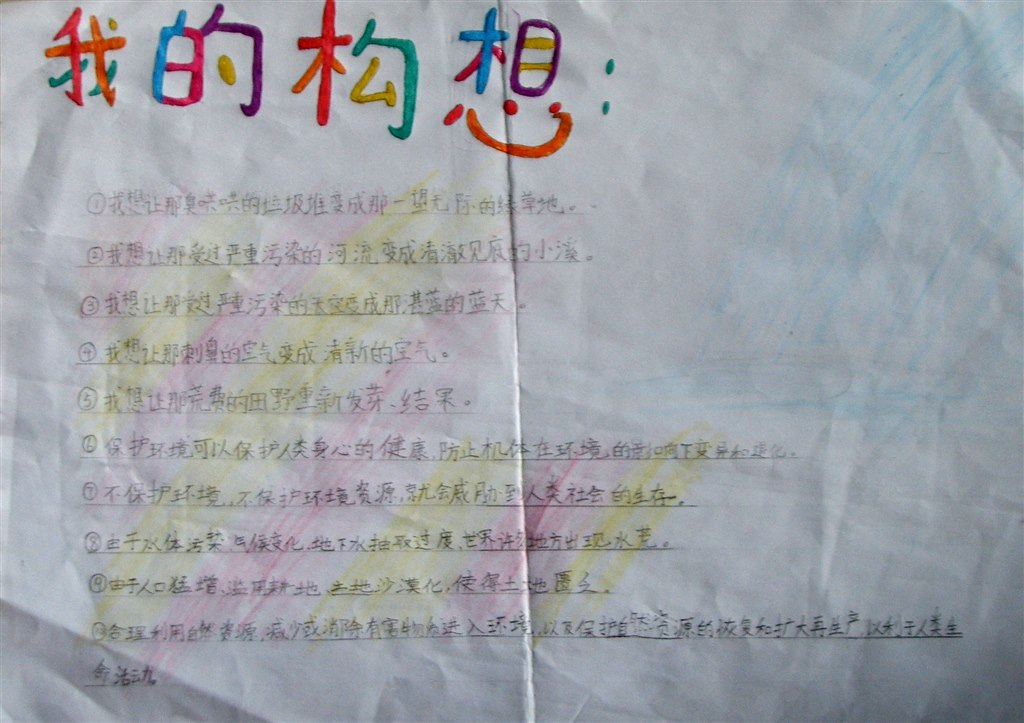 我的构想:
①我想让那臭哄哄的垃圾堆变成那一望无际的绿草地。
②我想让那受过严重污染的河流,变成清澈见底的小溪。
③我想让那受过严重污染的天空变成那湛蓝的蓝天。
④我想让那刺鼻的空气变成清新的空气。
⑤我想让那荒费的田野重新发芽、结果。
⑥保护环境可以保护人类身心的健康,防止机体在环境的影响下变异和退化。
⑦不保护环境,不保护环境资源,就会威胁到人类社会的生存。
⑧由于水体污染、气候变化、地下水抽取过度,世界许多地方出现水荒。
⑨由于人口猛增、滥用耕地、土地沙漠化,使得土地匮乏。
⑩合理利用自然资源,减少或消除有害物质进入环境,以及保护自然资源的恢复和扩大再生产,以利于人类生
命活动。